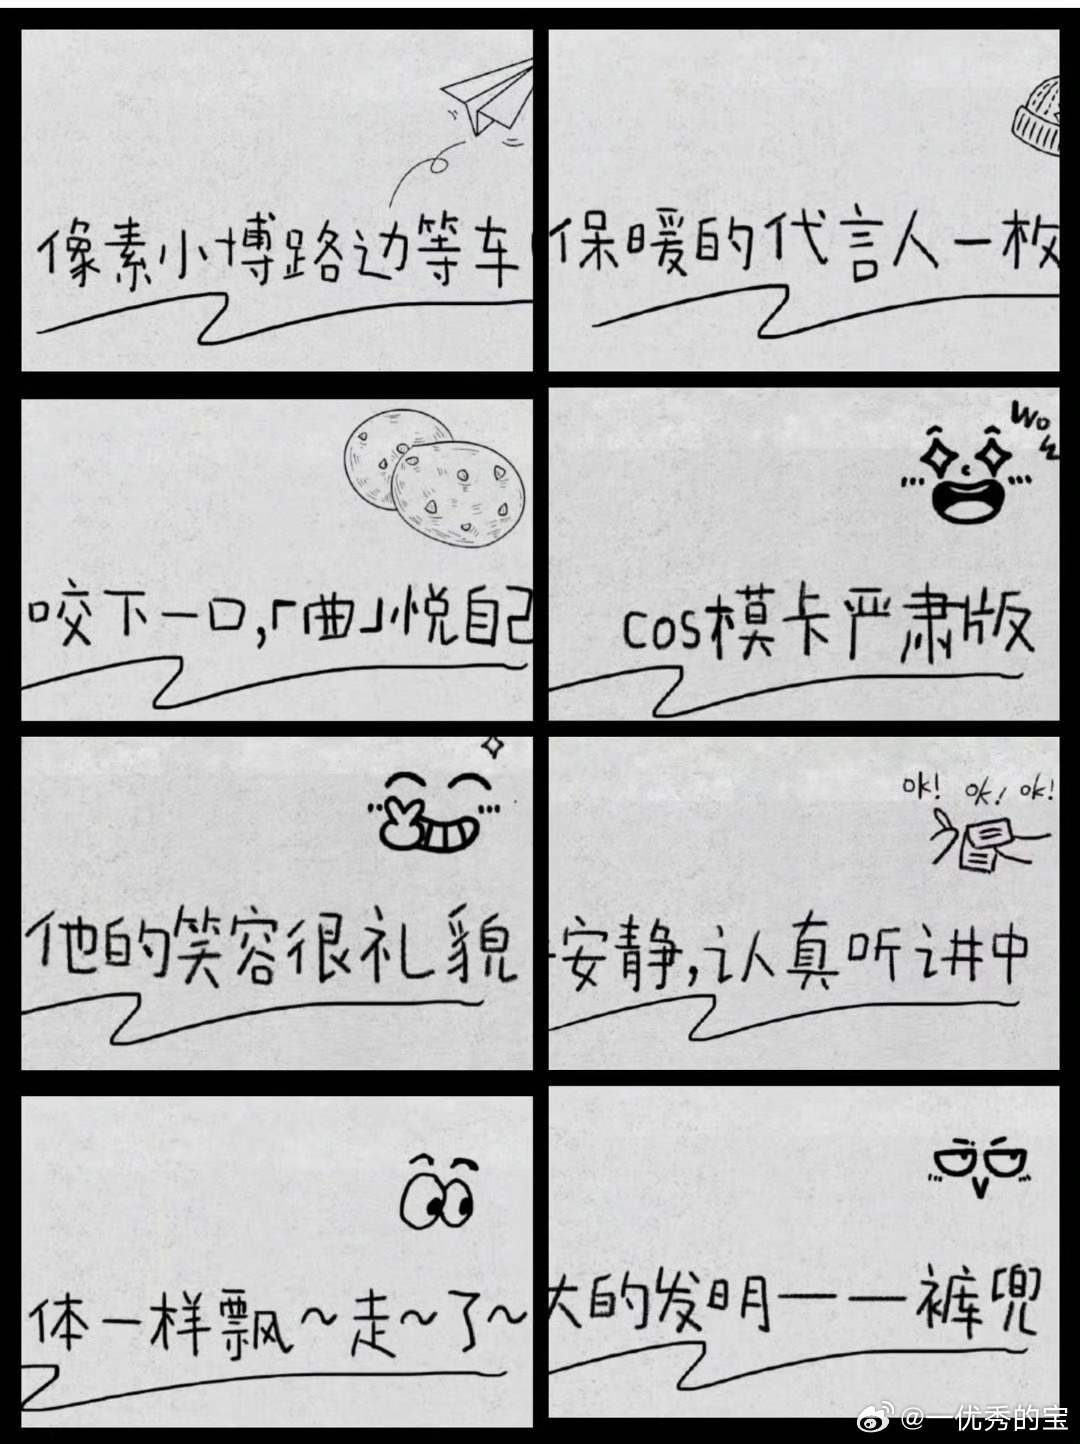 像素小博路边等车
保暖的代言人一枚
咬下一口,「曲」悦自己
wow
cos模卡严肃版
他的笑容很礼貌
OK! OK! OK!
安静,认真听讲中
体一样飘~走~了~
大的发明——裤兜
@一优秀的宝